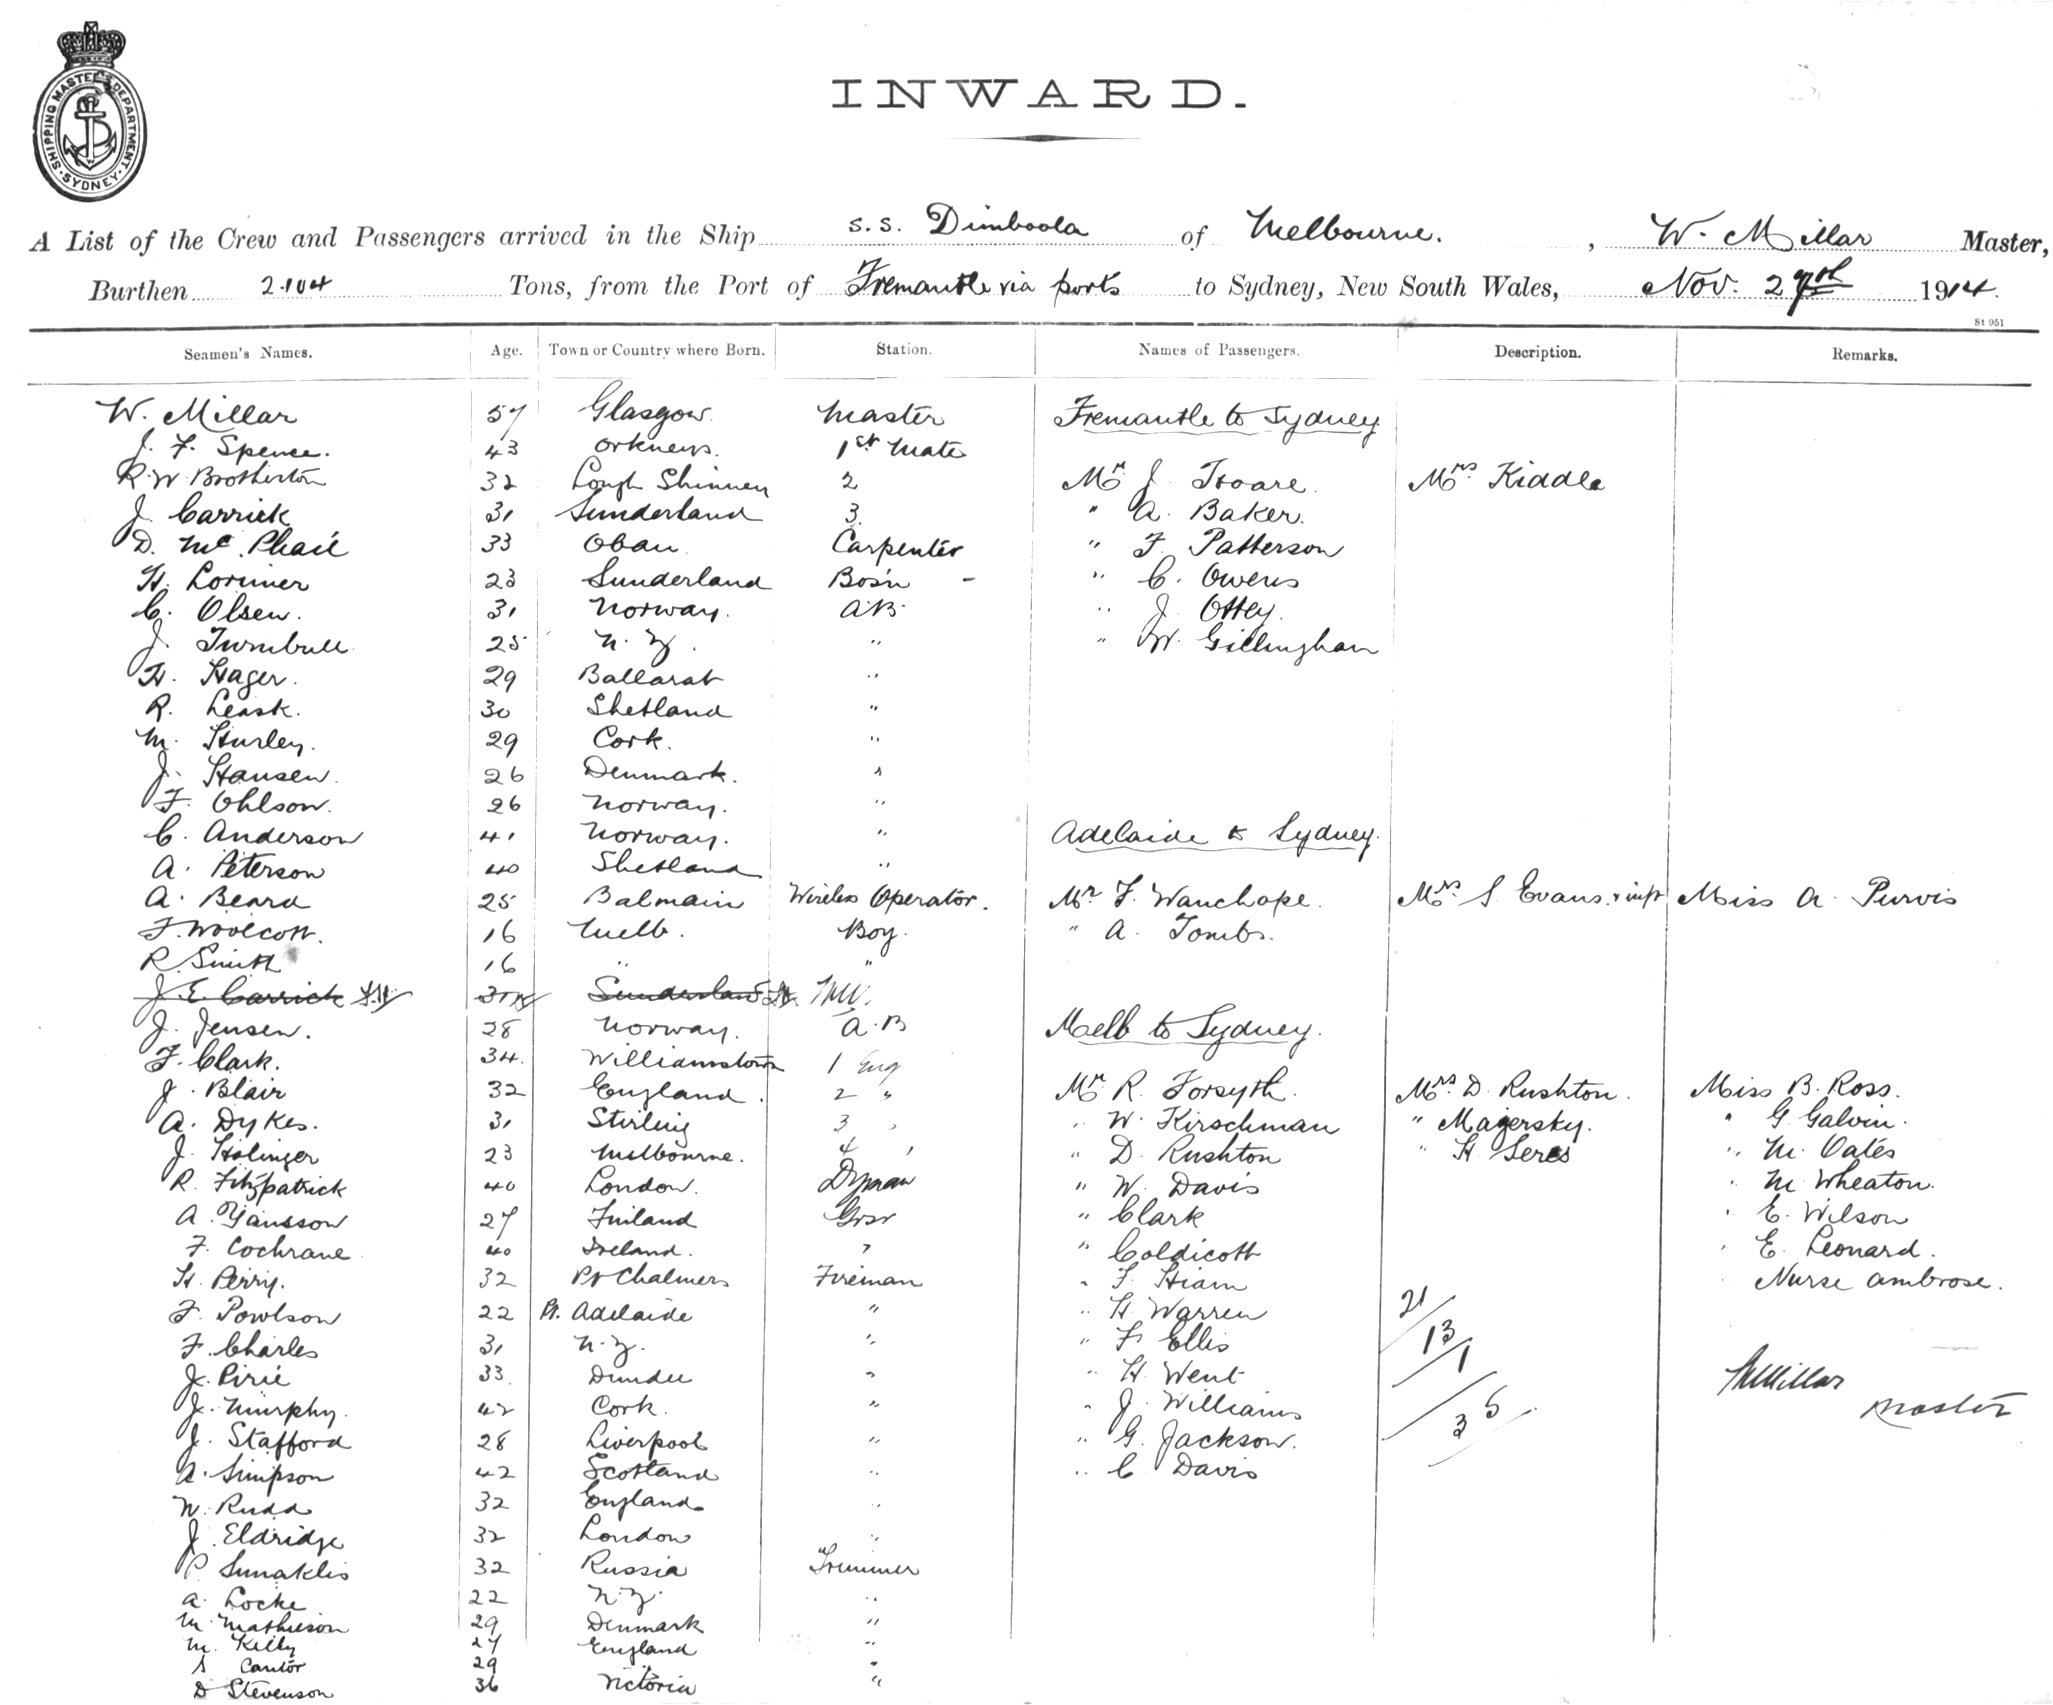 SHIPPING MASTER'S DEPARTMENT. SYDNEY.
INWARD.
A List of the Crew and Passengers arrived in the Ship s.s. Dimboola of Melbourne. , W. Millar Master,
Burthen 2104 Tons, from the Port of Fremantle via ports to Sydney, New South Wales, Nov. 27th 1914.
St 951
Seamen's Names. Age. Town or Country where Born. Station. Names of Passengers. Description. Remarks.
W. Millar 57 Glasgow. Master Fremantle to Sydney
J. F. Spence. 43 Orkneys. 1st Mate
R. W. Brotherton 32 Lough Shinney 2 Mr J. Hoare. Mrs Kiddle
J. Carrick 31 Sunderland 3. " A. Baker.
D. McPhail 33 Oban Carpenter " F. Patterson
H. Lorimer 23 Sunderland Bos'n - " C. Owens
C. Olsen. 31 Norway. A.B. " J. Ottey.
J. Turnbull 25 N.Z. " " W. Gillingham
H. Hager. 29 Ballarat "
R. Leask. 30 Shetland "
M. Hurley. 29 Cork. "
J. Hansen. 26 Denmark. "
F. Ohlson. 26 Norway. "
C. Anderson 41 Norway. " Adelaide to Sydney.
A. Peterson 40 Shetland "
A. Beard 25 Balmain Wireless Operator. Mr F. Wanchope. Mrs S. Evans. & inft Miss A. Purvis
F. Woolcott. 16 Melb. Boy. " A. Tombs.
R. Smith 16 " "
J. E. Carrick 31 Sunderland
J. Jensen. 28 Norway. A.B Melb to Sydney.
F. Clark. 34. Williamstown 1 Eng
J. Blair 32 England. 2 " Mr R. Forsyth. Mrs D. Rushton. Miss B. Ross.
A. Dykes. 31 Stirling 3 " " W. Kirschman " Magersky. " G. Galvin.
J. Holinger 23 Melbourne. 4 " " D. Rushton " H. Seres " M. Oates
R. Fitzpatrick 40 London. Dyman " W. Davis " M. Wheaton.
A. Yansson 27 Finland Grsr " Clark " E. Wilson
F. Cochrane 40 Ireland. " " Coldicott " E. Leonard.
H. Perry. 32 Pt Chalmers Fireman " F. Hiam Nurse Ambrose.
F. Powlson 22 Pt. Adelaide " " H. Warren 21
F. Charles 31 N.Z. " " F. Ellis 13
J. Pirie 33. Dundee " " H. Went 1 WMillar
J. Murphy. 42 Cork. " " J. Williams 35 Master
J. Stafford 28 Liverpool " " G. Jackson.
A. Simpson 42 Scotland " " C. Davis
W. Rudd 32 England "
J. Eldridge 32 London "
P. Sunaklis 32 Russia Trimmer
A. Locke 22 N.Z. "
M. Mathieson 29 Denmark "
M. Kelly 27 England "
S Cantor 29 " "
D Stevenson 36 Victoria "